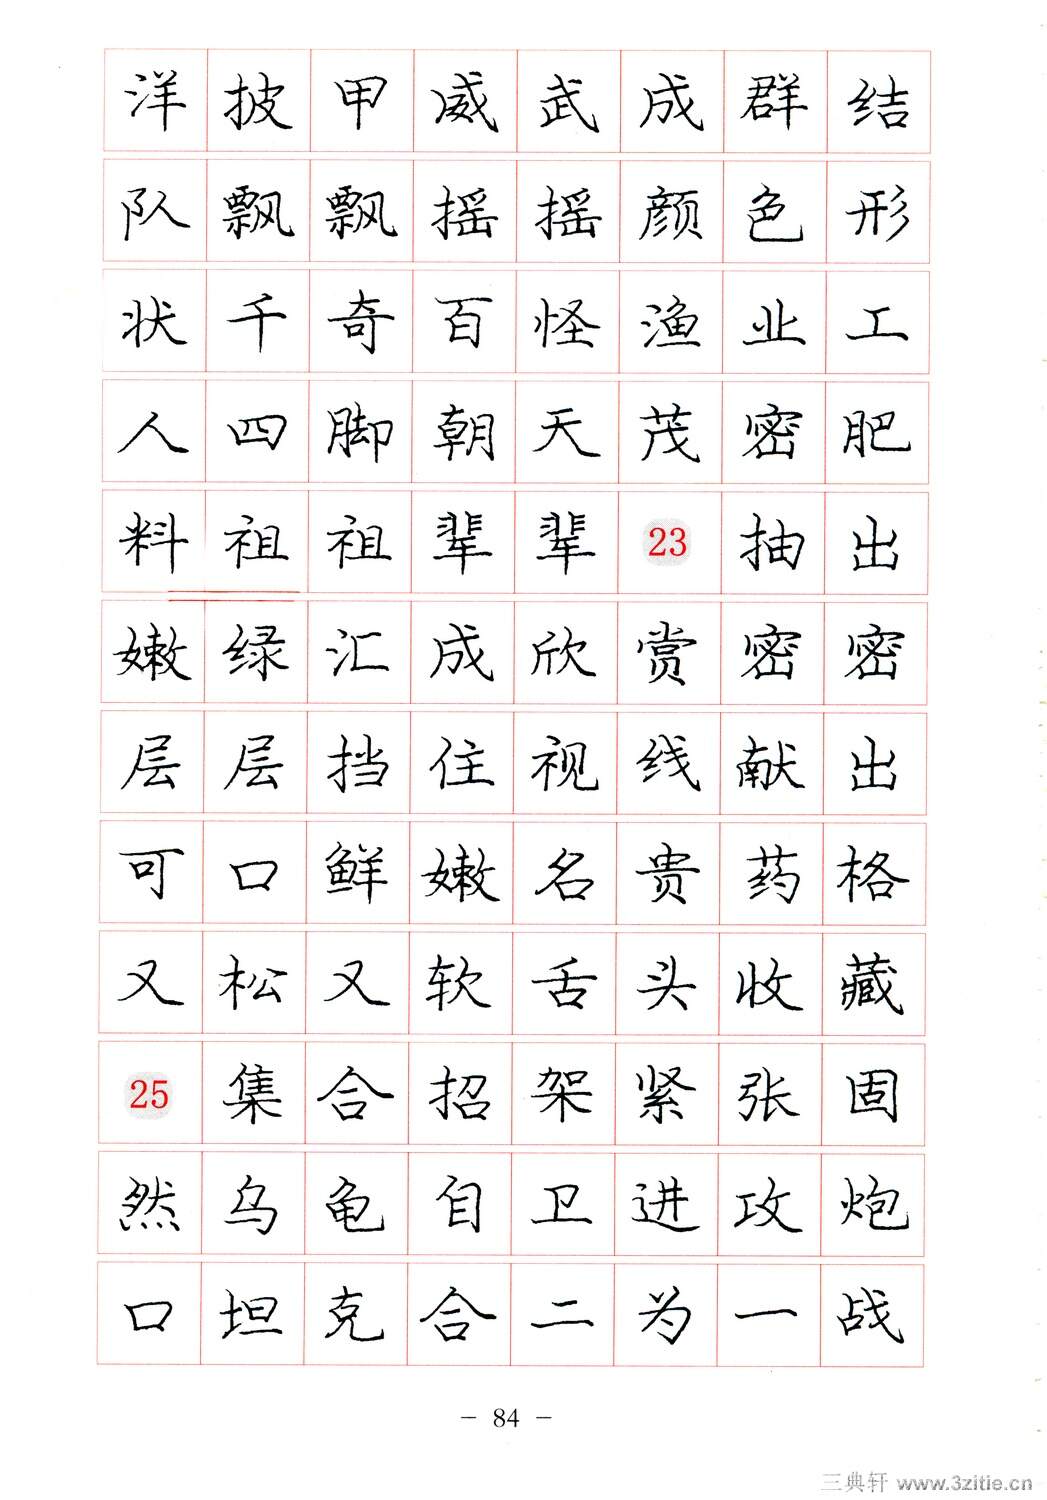 洋披甲威武成群结
队飘飘摇摇颜色形
状千奇百怪渔业工
人四脚朝天茂密肥
料祖祖辈辈23抽出
嫩绿汇成欣赏密密
层层挡住视线献出
可口鲜嫩名贵药格
又松又软舌头收藏
25集合招架紧张固
然乌龟自卫进攻炮
口坦克合二为一战
－ 84 －
三典轩 www.3zitie.cn